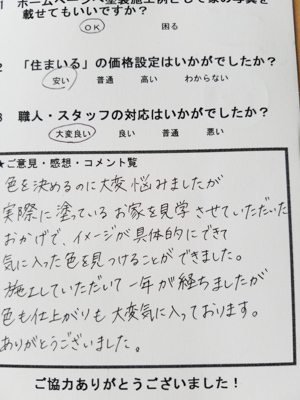 ホームページへ塗装施工例として家の写真を
載せてもいいですか?
OK 困る
2 「住まいる」の価格設定はいかがでしたか?
安い 普通 高い わからない
3 職人・スタッフの対応はいかがでしたか?
大変良い 良い 普通 悪い
★ご意見・感想・コメント覧
色を決めるのに大変悩みましたが
実際に塗っているお家を見学させていただいた
おかげで、イメージが具体的にできて
気に入った色を見つけることができました。
施工していただいて一年が経ちましたが
色も仕上がりも大変気に入っております。
ありがとうございました。
ご協力ありがとうございました!